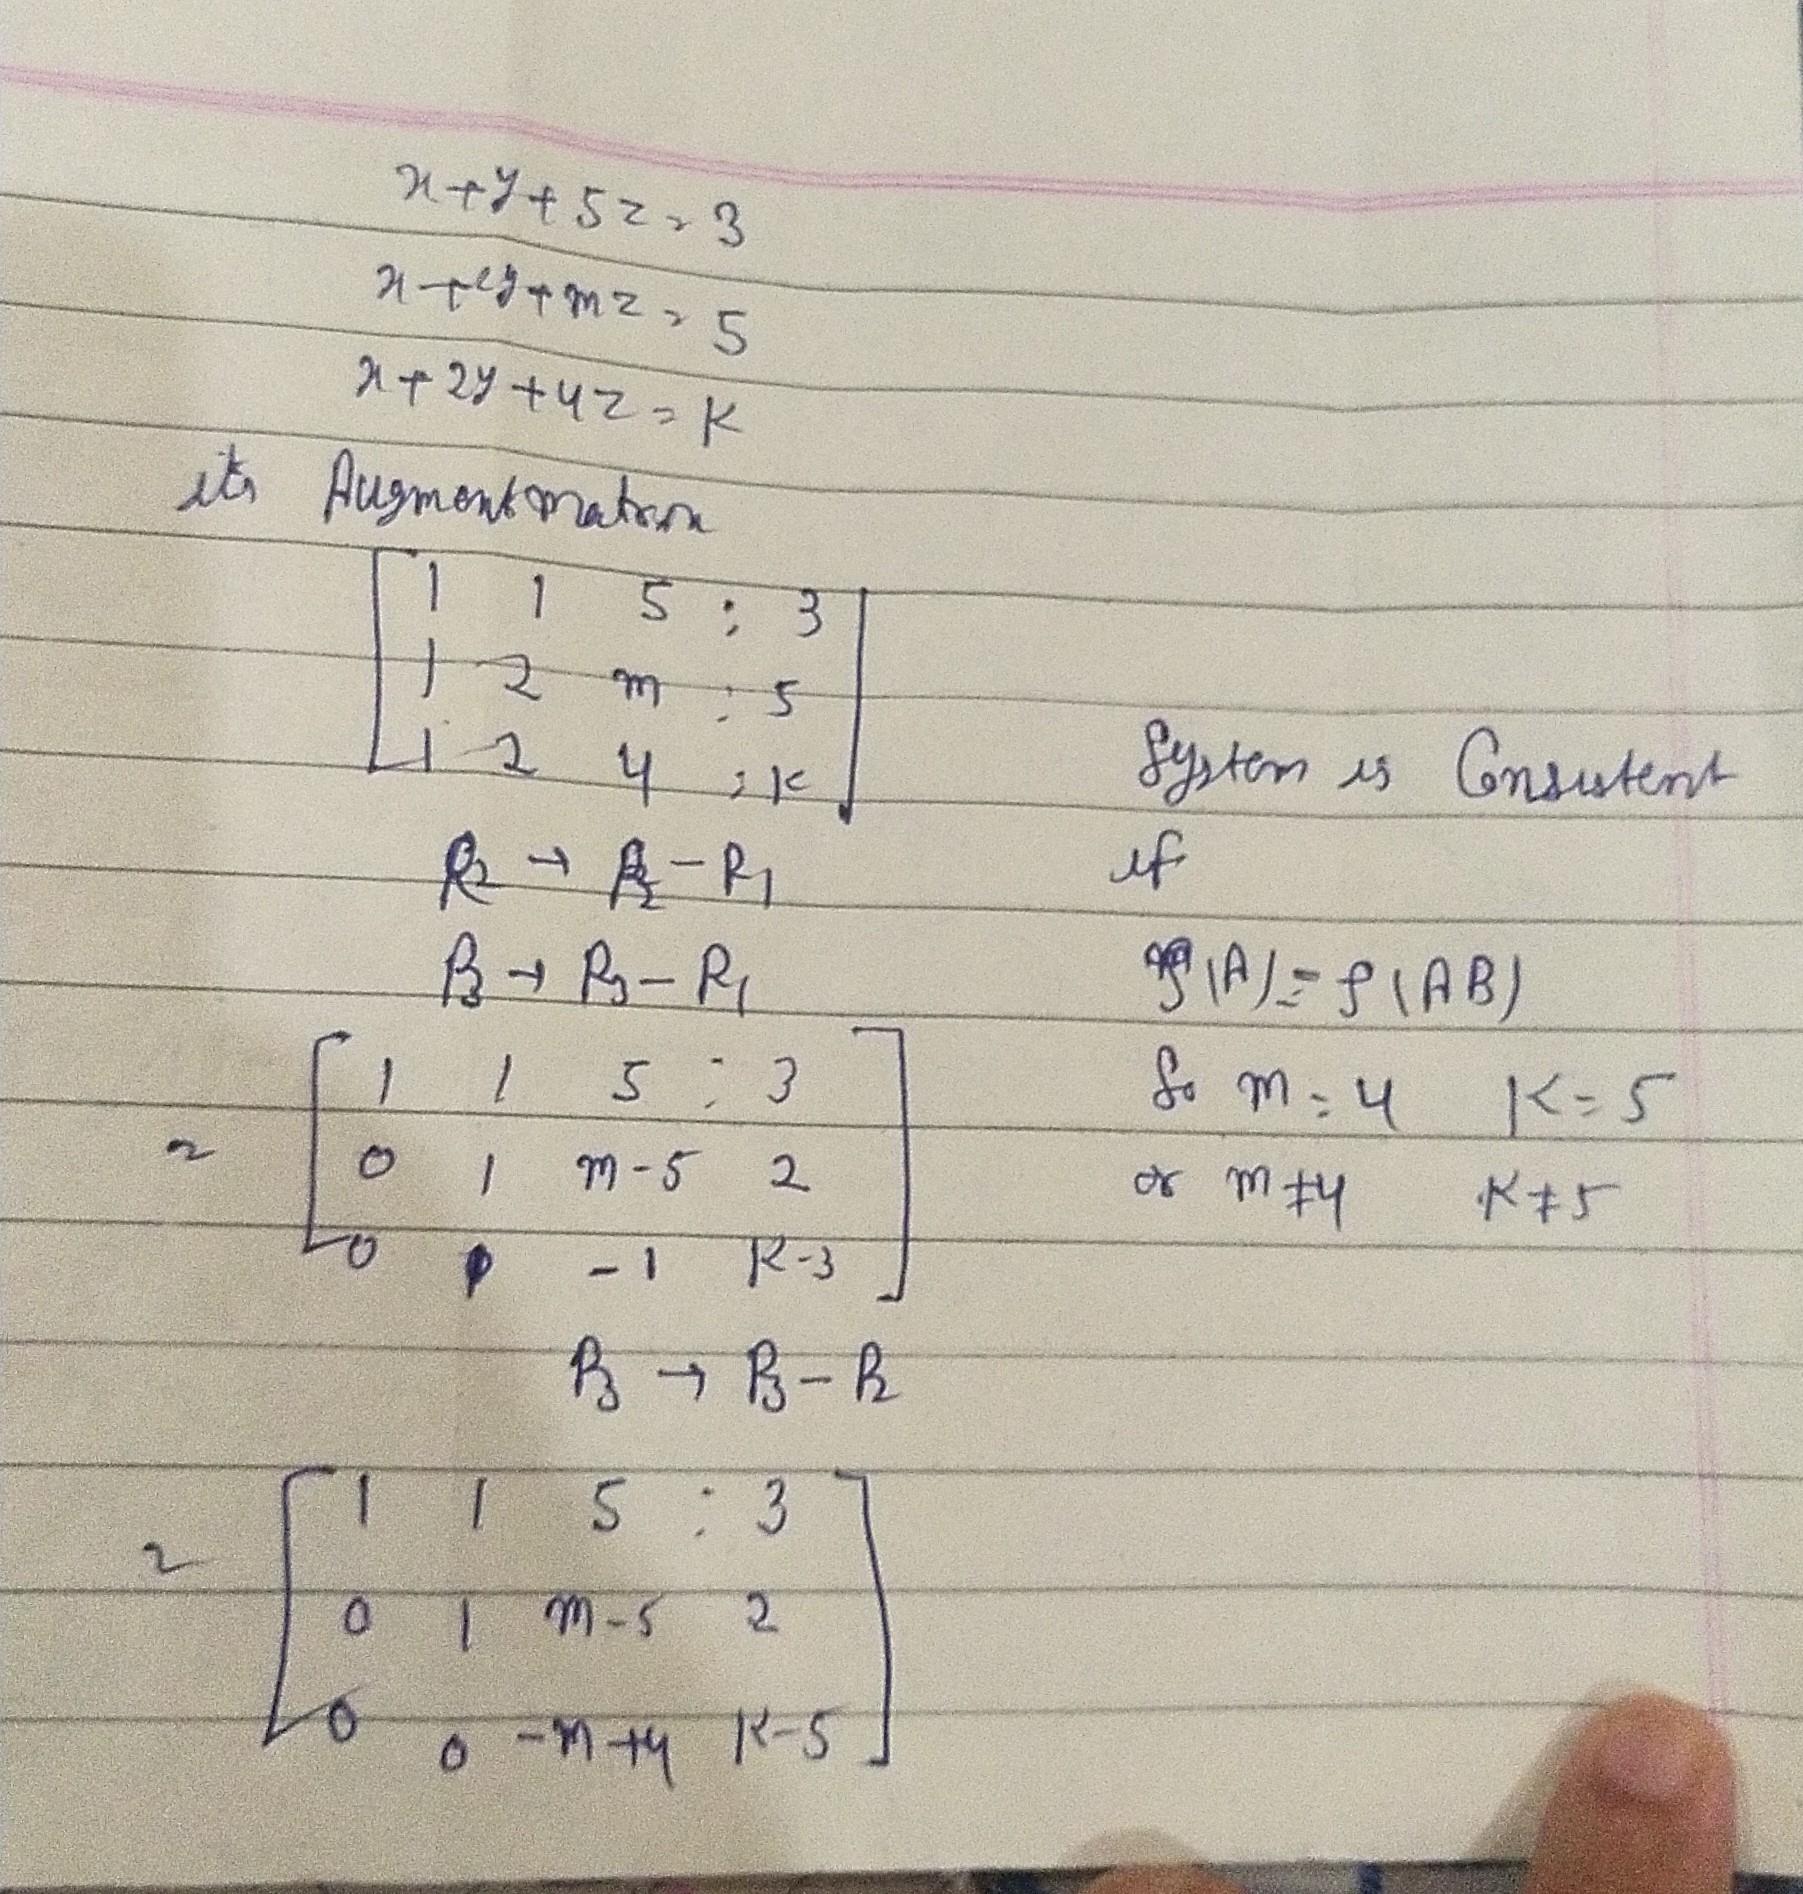 x+y+5z=3
x+2y+mz=5
x+2y+4z=K
its Augment matrix
1 1 5 : 3
1 2 m : 5
1 2 4 : K
R2 → R2-R1
R3 → R3-R1
~ 1 1 5 : 3
0 1 m-5 2
0 1 -1 K-3
R3 → R3-R2
~ 1 1 5 : 3
0 1 m-5 2
0 0 -m+4 K-5
System is Consistent
if
ρ(A)=ρ(AB)
So m=4 K=5
or m≠4 K≠5